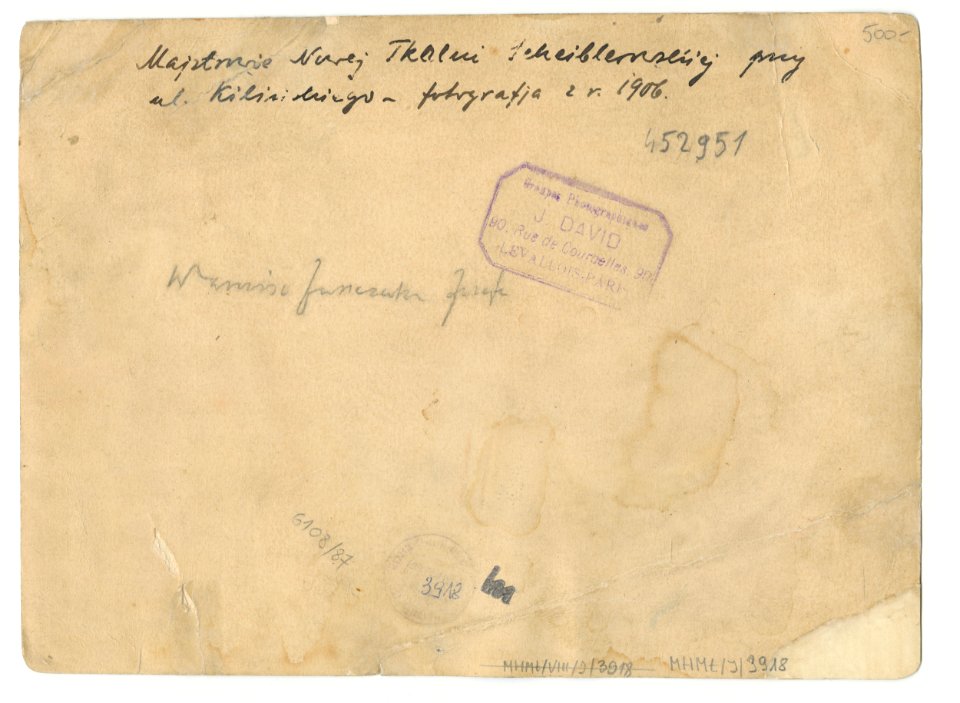 500-
Majstrowie Nowej Tkalni Scheiblerowskiej przy
ul. Kilińskiego - fotografja z r. 1906.
452951
Groupes Photographiques
J. DAVID
90, Rue de Courcelles, 90
LEVALLOIS-PARET
6108/87
3918
MHMŁ/VIII/J/3918
MHMŁ/J/3918